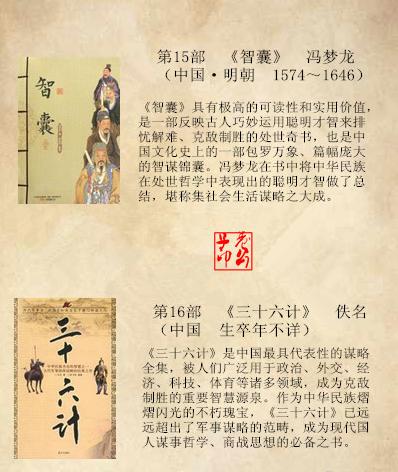 第15部　《智囊》　冯梦龙
（中国·明朝　1574～1646）
智囊
《智囊》具有极高的可读性和实用价值，
是一部反映古人巧妙运用聪明才智来排
忧解难、克敌制胜的处世奇书，也是中
国文化史上的一部包罗万象、篇幅庞大
的智谋锦囊。冯梦龙在书中将中华民族
在处世哲学中表现出的聪明才智做了总
结，堪称集社会生活谋略之大成。
第16部　《三十六计》　佚名
（中国　生卒年不详）
三十六计
《三十六计》是中国最具代表性的谋略
全集，被人们广泛用于政治、外交、经
济、科技、体育等诸多领域，成为克敌
制胜的重要智慧源泉。作为中华民族熠
熠闪光的不朽瑰宝，《三十六计》已远
远超出了军事谋略的范畴，成为现代国
人谋事哲学、商战思想的必备之书。